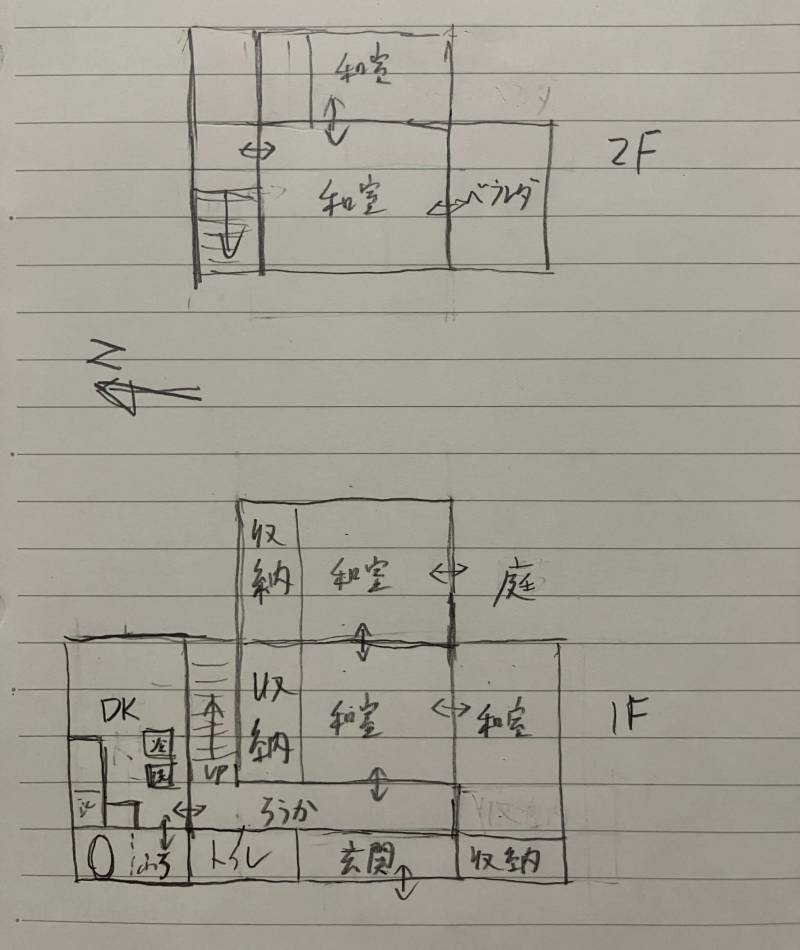 和室
2F
和室
ベランダ
N
収納
和室
庭
DK
UP
収納
和室
和室
1F
冷
ろうか
ふろ
トイレ
玄関
収納